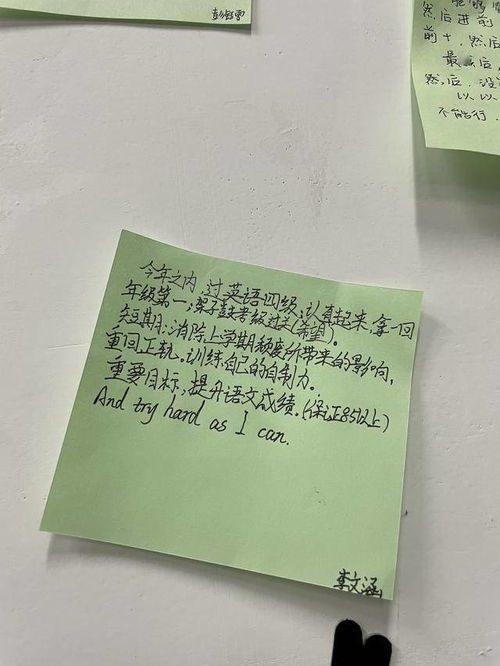 今年之内,过英语四级,认真起来,拿一回
年级第一;架子鼓考级过关(希望)。
短期:消除上学期颓废所带来的影响,
重回正轨。训练自己的自制力。
重要目标,提升语文成绩。(保证85以上)
And try hard as I can.
李文涵
然后进前
前十,然后
最后
然后,没
以以
不能行.